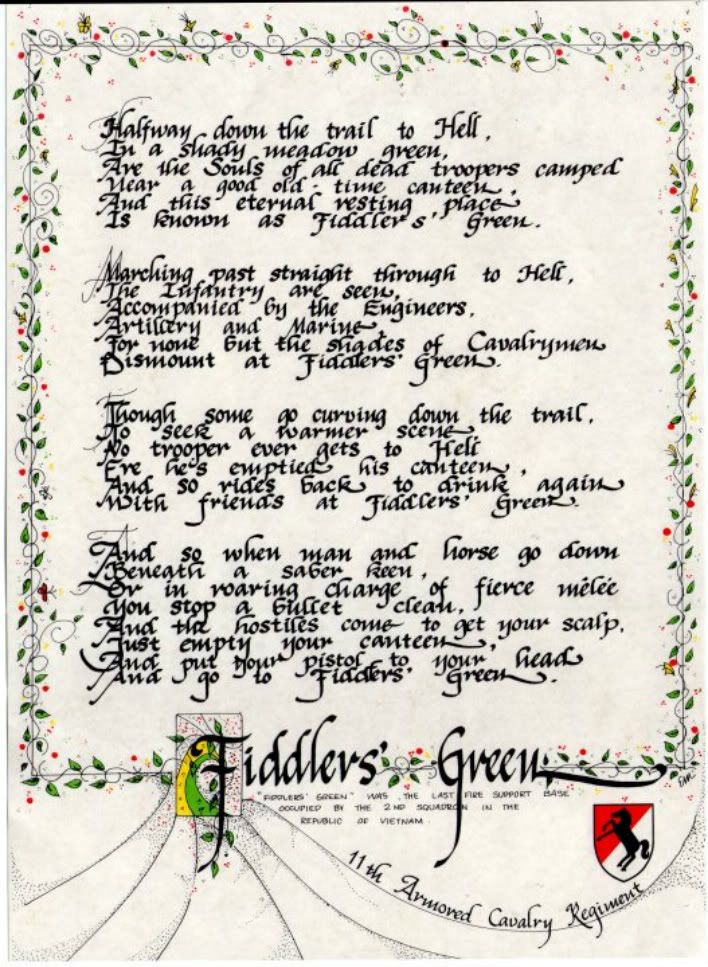 Halfway down the trail to Hell,
In a shady meadow green,
Are the Souls of all dead troopers camped
Near a good old-time canteen,
And this eternal resting place
Is known as Fiddlers' Green.
Marching past straight through to Hell,
The Infantry are seen,
Accompanied by the Engineers,
Artillery and Marine,
For none but the shades of Cavalrymen
Dismount at Fiddlers' Green.
Though some go curving down the trail,
To seek a warmer scene
No trooper ever gets to Hell
Ere he's emptied his canteen,
And so rides back to drink again
With friends at Fiddlers' Green.
And so when man and horse go down
Beneath a saber keen,
Or in roaring charge of fierce mêlée
You stop a bullet clean,
And the hostiles come to get your scalp,
Just empty your canteen,
And put your pistol to your head
And go to Fiddlers' Green.
Fiddlers' Green
"FIDDLERS' GREEN" WAS THE LAST FIRE SUPPORT BASE
OCCUPIED BY THE 2ND SQUADRON IN THE
REPUBLIC OF VIETNAM
11th Armored Cavalry Regiment